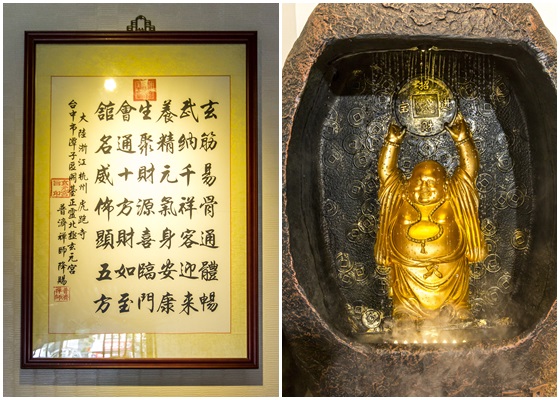 玄筋易骨通體暢
武納千祥容迎來
養精元氣身安康
生聚財源喜臨門
會通十方財如至
館名威佛顯五方
大陸浙江杭州虎跑寺
台中市潭子區開基正靈北極玄元宮
普濟禪師降賜